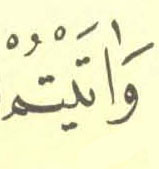 وَاٰتَيْتُمْ